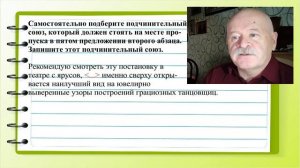 Самостоятельно подберите подчинительный
союз, который должен стоять на месте про-
пуска в пятом предложении второго абзаца.
Запишите этот подчинительный союз.
Рекомендую смотреть эту постановку в
театре с ярусов, <...> именно сверху откры-
вается наилучший вид на ювелирно
выверенные узоры построений грациозных танцовщиц.